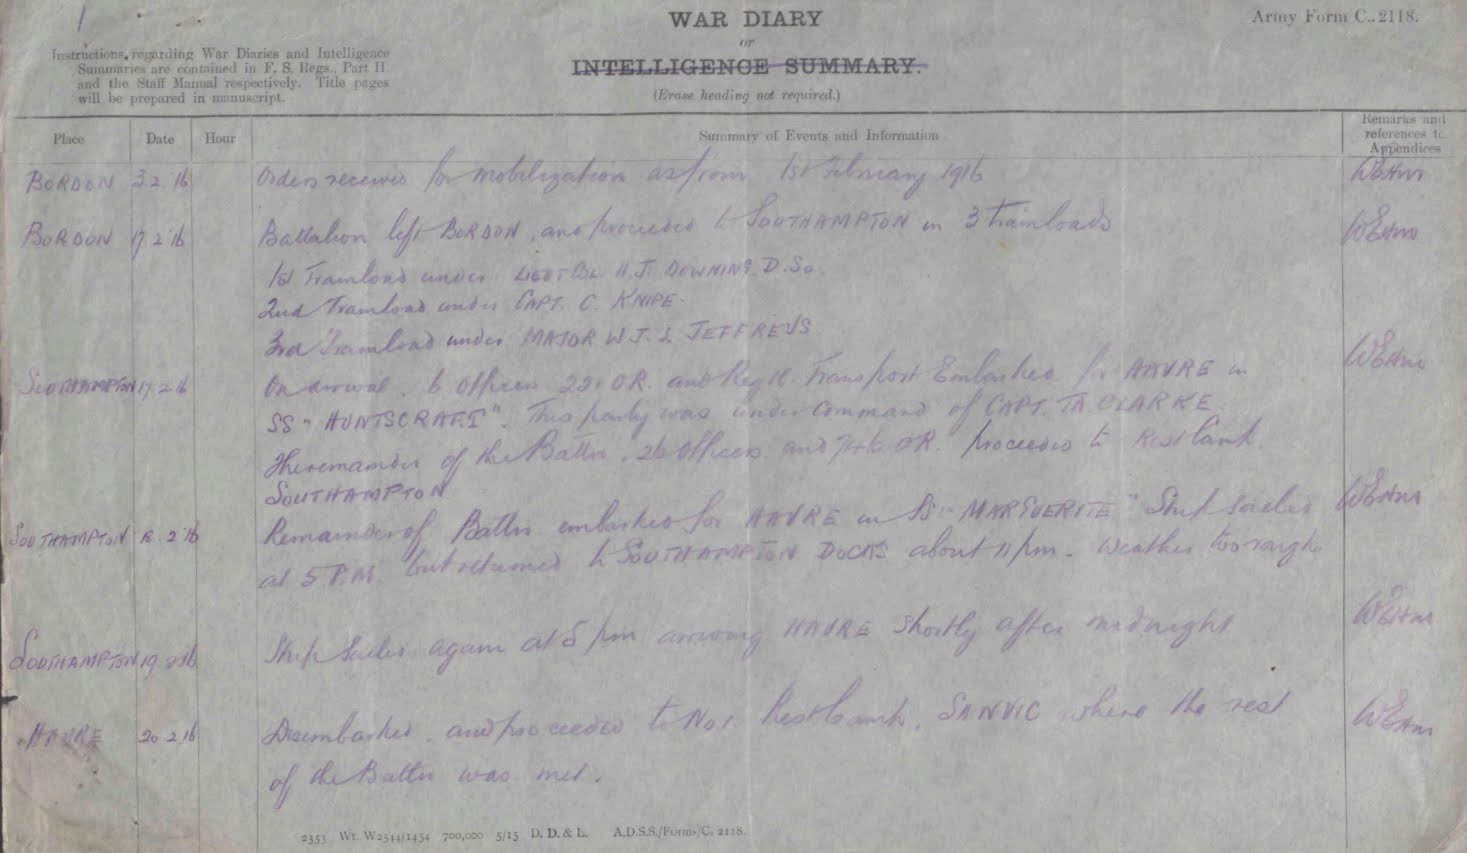 1
WAR DIARY
or
INTELLIGENCE SUMMARY.
(Erase heading not required.)
Army Form C. 2118.
Instructions regarding War Diaries and Intelligence
Summaries are contained in F. S. Regs., Part II.
and the Staff Manual respectively. Title pages
will be prepared in manuscript.
Place Date Hour Summary of Events and Information Remarks and
references to
Appendices
BORDON 3.2.16 Orders received for mobilization as from 1st February 1916
BORDON 17.2.16 Battalion left BORDON, and proceeded to SOUTHAMPTON in 3 trainloads
1st Trainload under LIEUT COL H.J. DOWNING. D.SO.
2nd Trainload under CAPT. C. KNIPE.
3rd Trainload under MAJOR W.J.L JEFFREYS
SOUTHAMPTON 17.2.16 On arrival. 6 Officers 220 OR. and Regtl. Transport Embarked for HAVRE in
SS "HUNTSCRAFT". This party was under command of CAPT. TA CLARKE.
The remainder of the Battn. 26 Officers and OR. proceeded to Rest Camp.
SOUTHAMPTON
SOUTHAMPTON 18.2.16 Remainder of Battn embarked for HAVRE in SS "MARGUERITE" Ship sailed
at 5 P.M. but returned to SOUTHAMPTON DOCKS about 11 pm. Weather too rough.
SOUTHAMPTON 19.2.16 Ship sailed again at 5 pm arriving HAVRE shortly after midnight
HAVRE 20.2.16 Disembarked, and proceeded to No 1. Rest Camp, SANVIC where the rest
of the Battn was met.
2353 Wt. W2544/1454 700,000 5/15 D. D. & L. A.D.S.S./Forms/C. 2118.